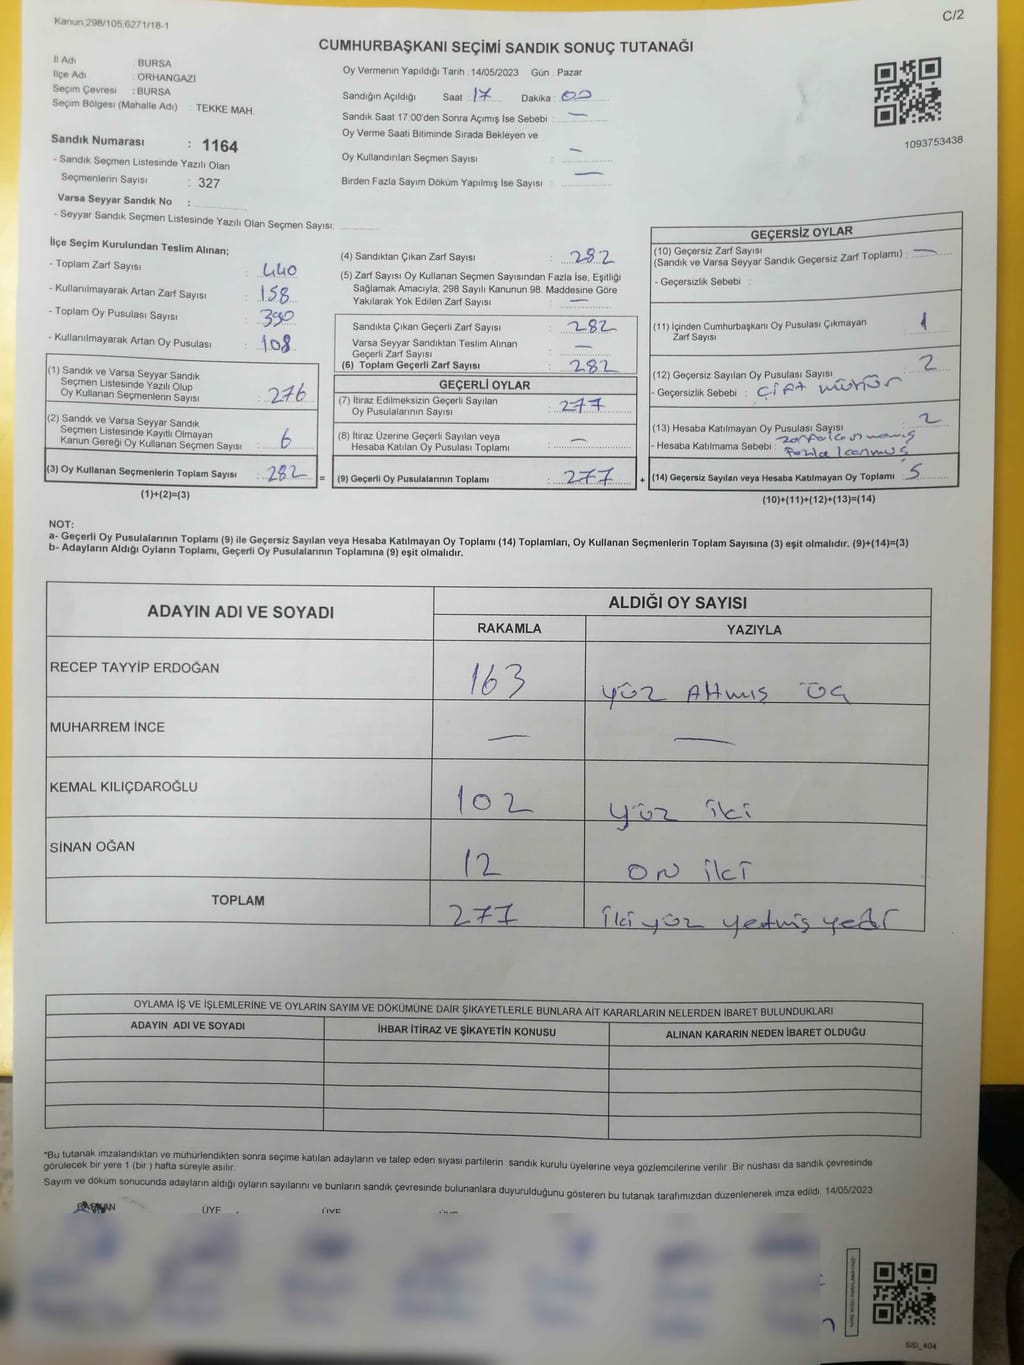 Kanun.298/105,6271/18-1
C/2
CUMHURBAŞKANI SEÇİMİ SANDIK SONUÇ TUTANAĞI
İl Adı : BURSA
İlçe Adı : ORHANGAZİ
Seçim Çevresi : BURSA
Seçim Bölgesi (Mahalle Adı) : TEKKE MAH.
Oy Vermenin Yapıldığı Tarih : 14/05/2023 Gün : Pazar
Sandığın Açıldığı Saat : 17 Dakika : 00
Sandık Saat 17:00'den Sonra Açımış İse Sebebi : —
Oy Verme Saati Bitiminde Sırada Bekleyen ve
Oy Kullandırılan Seçmen Sayısı : —
Birden Fazla Sayım Döküm Yapılmış İse Sayısı : —
1093753438
Sandık Numarası : 1164
- Sandık Seçmen Listesinde Yazılı Olan
Seçmenlerin Sayısı : 327
Varsa Seyyar Sandık No :
- Seyyar Sandık Seçmen Listesinde Yazılı Olan Seçmen Sayısı:
İlçe Seçim Kurulundan Teslim Alınan;
- Toplam Zarf Sayısı : 440
- Kullanılmayarak Artan Zarf Sayısı : 158
- Toplam Oy Pusulası Sayısı : 390
- Kullanılmayarak Artan Oy Pusulası : 108
(1) Sandık ve Varsa Seyyar Sandık
Seçmen Listesinde Yazılı Olup
Oy Kullanan Seçmenlerin Sayısı : 276
(2) Sandık ve Varsa Seyyar Sandık
Seçmen Listesinde Kayıtlı Olmayan
Kanun Gereği Oy Kullanan Seçmen Sayısı : 6
(3) Oy Kullanan Seçmenlerin Toplam Sayısı : 282 =
(1)+(2)=(3)
(4) Sandıktan Çıkan Zarf Sayısı : 282
(5) Zarf Sayısı Oy Kullanan Seçmen Sayısından Fazla İse, Eşitliği
Sağlamak Amacıyla; 298 Sayılı Kanunun 98. Maddesine Göre
Yakılarak Yok Edilen Zarf Sayısı : —
Sandıkta Çıkan Geçerli Zarf Sayısı : 282
Varsa Seyyar Sandıktan Teslim Alınan
Geçerli Zarf Sayısı : —
(6) Toplam Geçerli Zarf Sayısı : 282
GEÇERLİ OYLAR
(7) İtiraz Edilmeksizin Geçerli Sayılan
Oy Pusulalarının Sayısı : 277
(8) İtiraz Üzerine Geçerli Sayılan veya
Hesaba Katılan Oy Pusulası Toplamı : —
(9) Geçerli Oy Pusulalarının Toplamı : 277 +
GEÇERSİZ OYLAR
(10) Geçersiz Zarf Sayısı
(Sandık ve Varsa Seyyar Sandık Geçersiz Zarf Toplamı) : —
- Geçersizlik Sebebi :
(11) İçinden Cumhurbaşkanı Oy Pusulası Çıkmayan
Zarf Sayısı : 1
(12) Geçersiz Sayılan Oy Pusulası Sayısı : 2
- Geçersizlik Sebebi : Çift mühür
(13) Hesaba Katılmayan Oy Pusulası Sayısı : 2
- Hesaba Katılmama Sebebi :
(14) Geçersiz Sayılan veya Hesaba Katılmayan Oy Toplamı : 5
(10)+(11)+(12)+(13)=(14)
NOT:
a- Geçerli Oy Pusulalarının Toplamı (9) ile Geçersiz Sayılan veya Hesaba Katılmayan Oy Toplamı (14) Toplamları, Oy Kullanan Seçmenlerin Toplam Sayısına (3) eşit olmalıdır. (9)+(14)=(3)
b- Adayların Aldığı Oyların Toplamı, Geçerli Oy Pusulalarının Toplamına (9) eşit olmalıdır.
ADAYIN ADI VE SOYADI
ALDIĞI OY SAYISI
RAKAMLA YAZIYLA
RECEP TAYYİP ERDOĞAN 163 yüz Altmış üç
MUHARREM İNCE — —
KEMAL KILIÇDAROĞLU 102 yüz iki
SİNAN OĞAN 12 ON iki
TOPLAM 277 iki yüz yetmiş yedi
OYLAMA İŞ VE İŞLEMLERİNE VE OYLARIN SAYIM VE DÖKÜMÜNE DAİR ŞİKAYETLERLE BUNLARA AİT KARARLARIN NELERDEN İBARET BULUNDUKLARI
ADAYIN ADI VE SOYADI İHBAR İTİRAZ VE ŞİKAYETİN KONUSU ALINAN KARARIN NEDEN İBARET OLDUĞU
*Bu tutanak imzalandıktan ve mühürlendikten sonra seçime katılan adayların ve talep eden siyasi partilerin sandık kurulu üyelerine veya gözlemcilerine verilir. Bir nüshası da sandık çevresinde
görülecek bir yere 1 (bir ) hafta süreyle asılır.
Sayım ve döküm sonucunda adayların aldığı oyların sayılarını ve bunların sandık çevresinde bulunanlara duyurulduğunu gösteren bu tutanak tarafımızdan düzenlenerek imza edildi. 14/05/2023
BAŞKAN ÜYE ÜYE
SSI_404